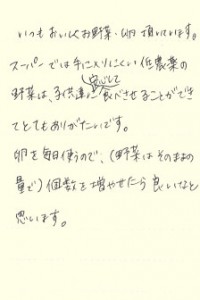 いつもおいしくお野菜・卵頂いています。
スーパーでは手に入りにくい低農薬の
野菜は、子供達に安心して食べさせることができ
てとてもありがたいです。
卵を毎日使うので、(野菜はそのままの
量で)個数を増やせたら良いなと
思います。